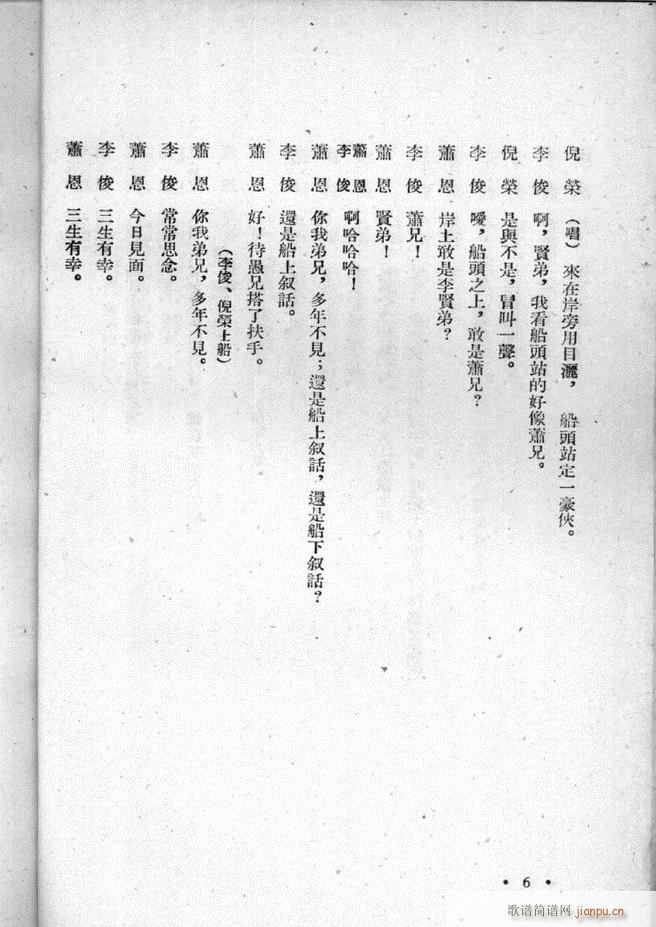 倪榮 （唱）來在岸旁用目灑， 船頭站定一豪俠。
李俊 啊，賢弟，我看船頭站的好像蕭兄。
倪榮 是與不是，冒叫一聲。
李俊 噯，船頭之上，敢是蕭兄？
蕭恩 岸上敢是李賢弟？
李俊 蕭兄！
蕭恩 賢弟！
蕭恩 李俊 啊哈哈哈！
蕭恩 你我弟兄，多年不見；還是船上叙話，還是船下叙話？
李俊 還是船上叙話。
蕭恩 好！待愚兄搭了扶手。
（李俊、倪榮上船）
蕭恩 你我弟兄，多年不見。
李俊 常常思念。
蕭恩 今日見面。
李俊 三生有幸。
蕭恩 三生有幸。
• 6 •
歌谱简谱网 jianpu.cn